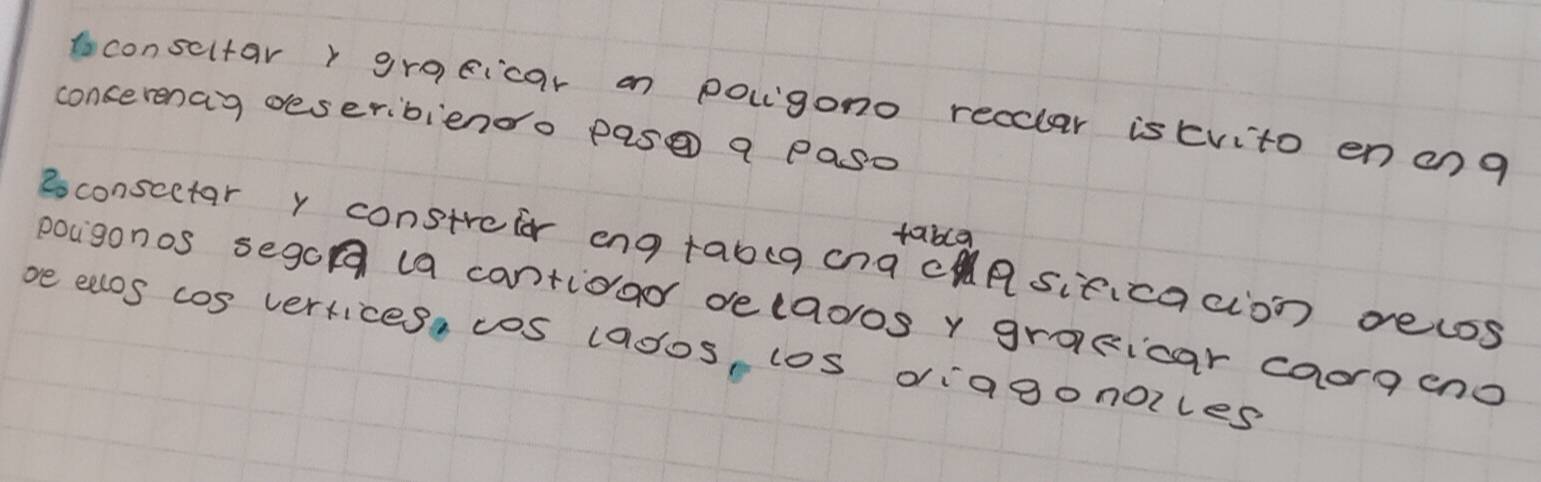 1. consultar y graficar un polígono reculiar iscrito en una
conferencia describiendo paso a paso
2. consultar y construir una tabla una tabla clasificación de los
polígonos segun la cantidad de lados y graficar cada uno
de ellos los vertices, los lados, los diagonales